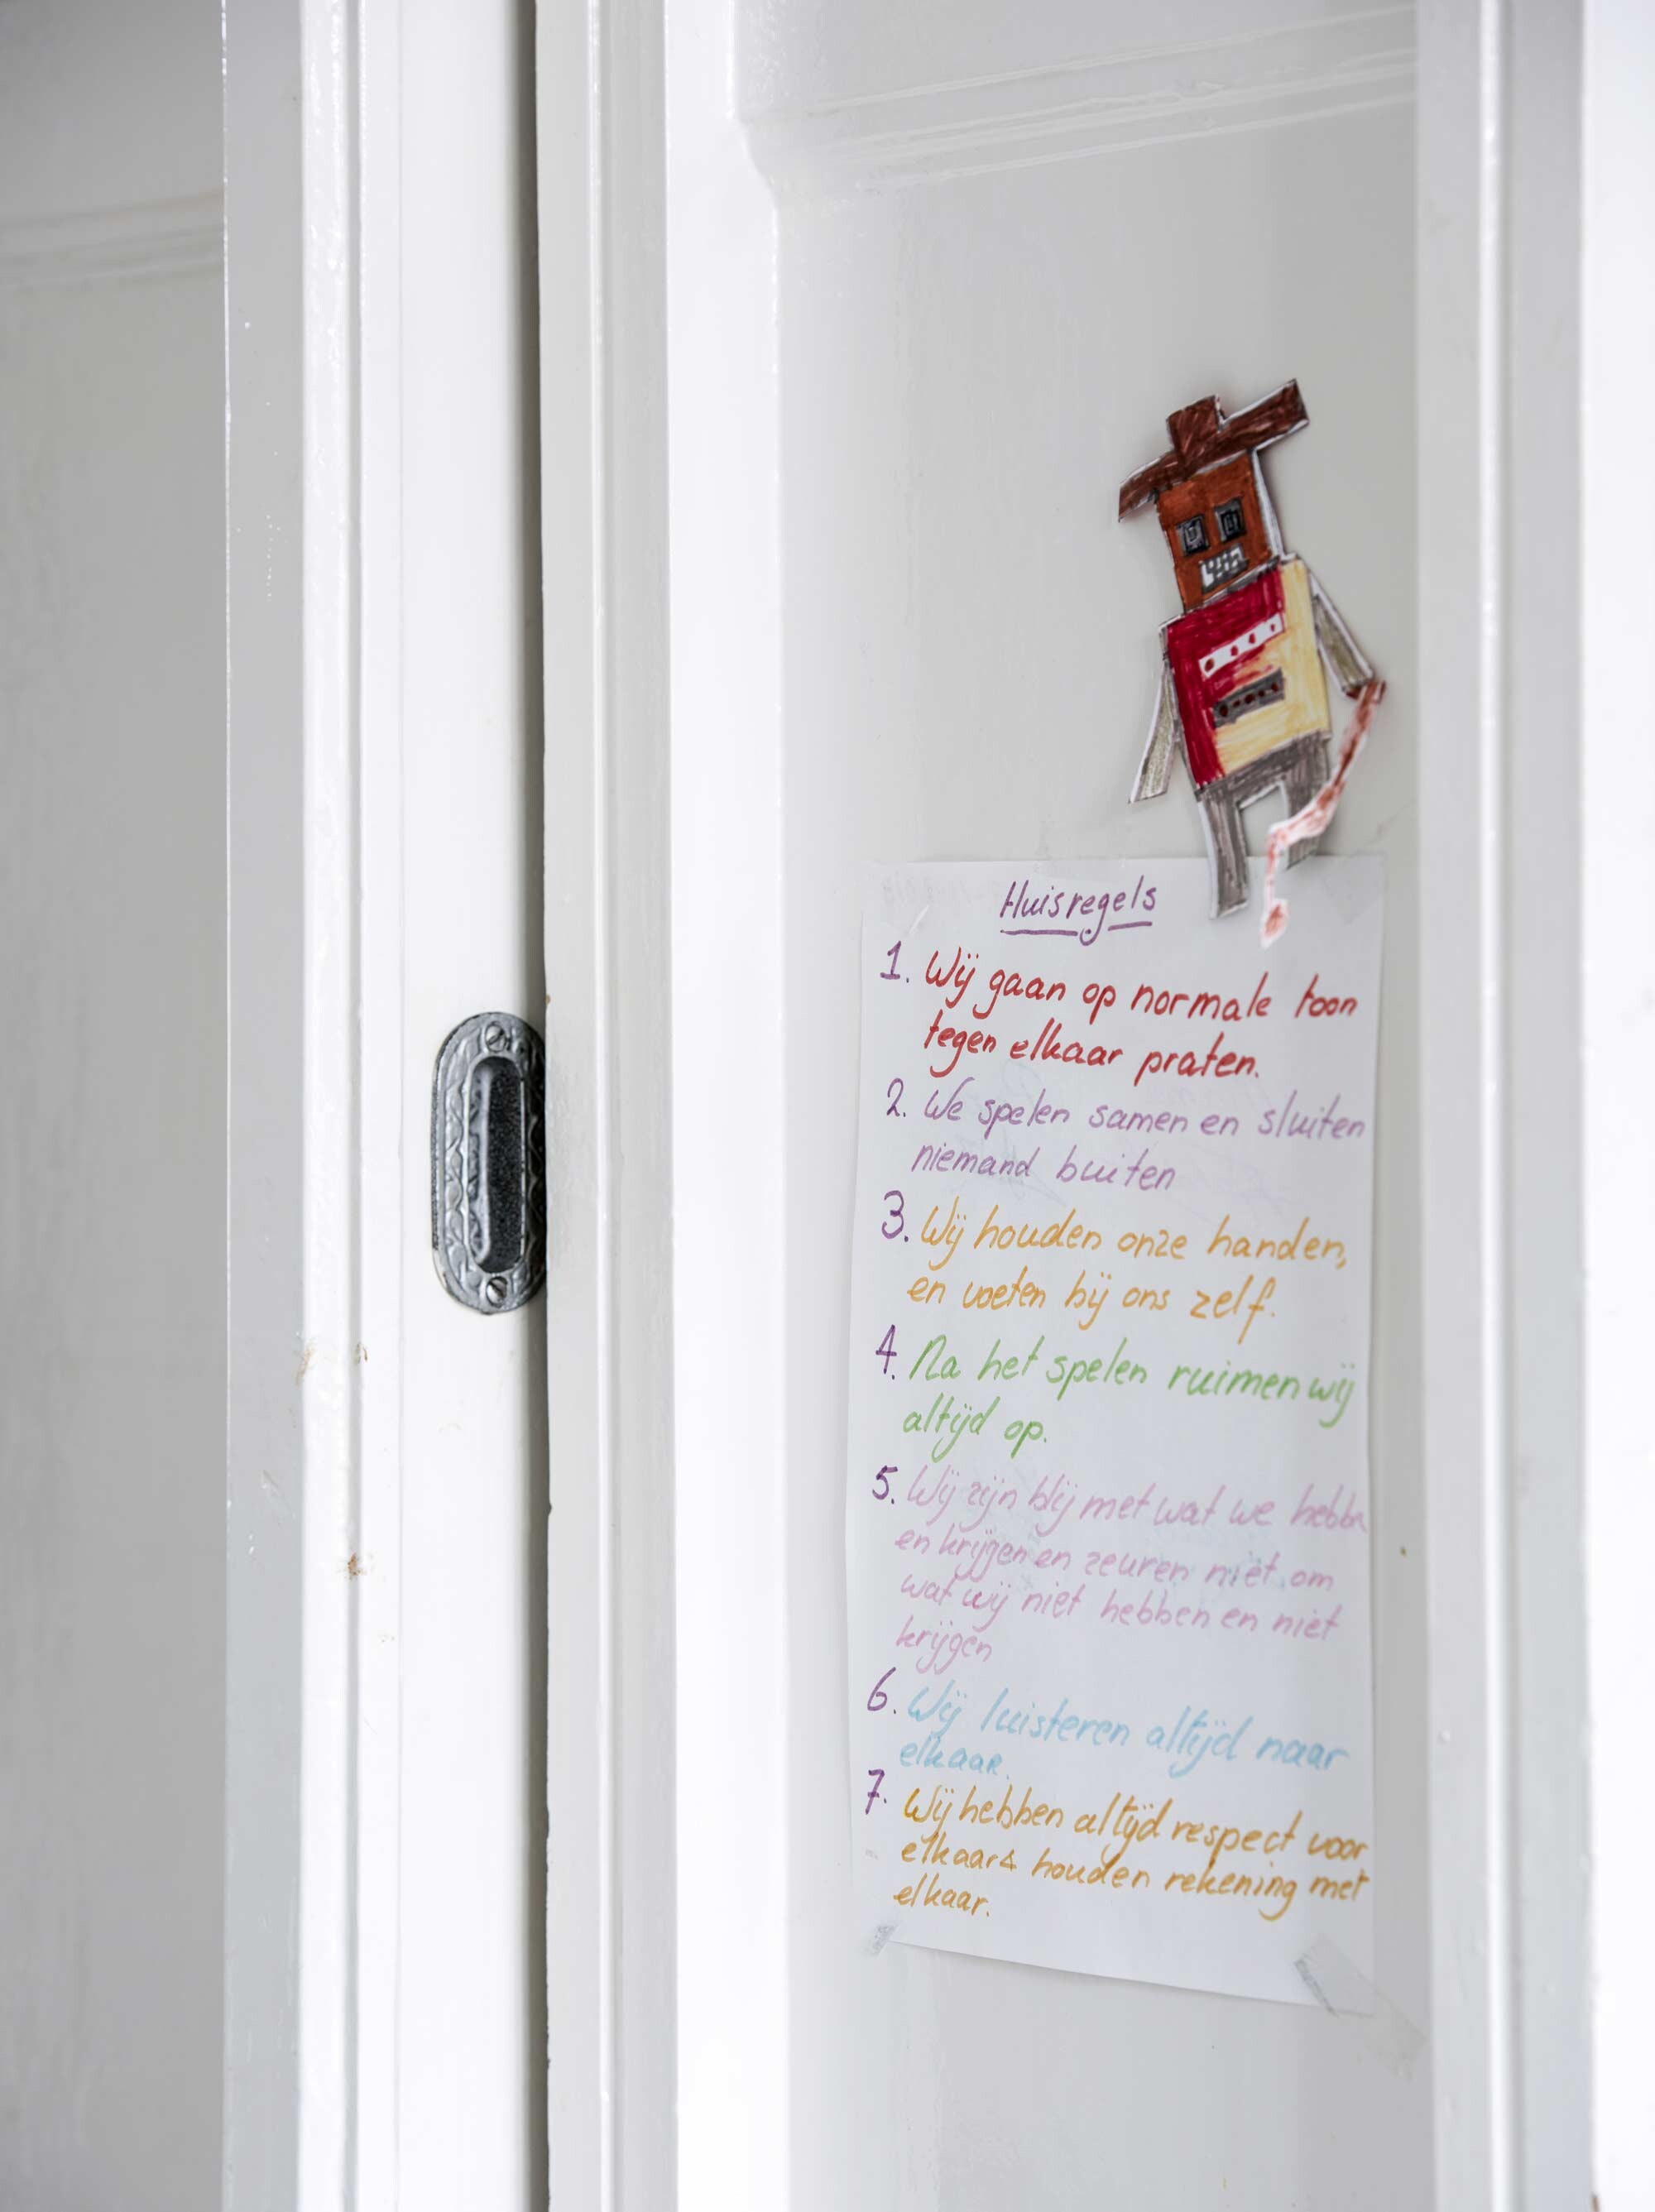 Huisregels
1. Wij gaan op normale toon
tegen elkaar praten.
2. We spelen samen en sluiten
niemand buiten
3. Wij houden onze handen,
en voeten bij ons zelf.
4. Na het spelen ruimen wij
altijd op.
5. Wij zijn blij met wat we hebbn
en krijgen en zeuren niet om
wat wij niet hebben en niet
krijgen
6. Wij luisteren altijd naar
elkaar.
7. Wij hebben altijd respect voor
elkaar & houden rekening met
elkaar.